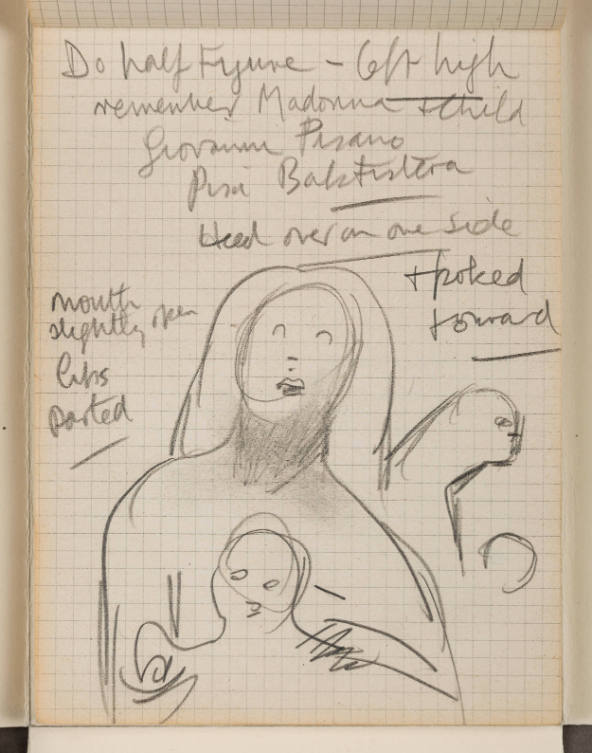 Do half Figure - 6ft high
remember Madonna + child
Giovanni Pisano
Pisa
Head over on one side
+ poked
forward
mouth
slightly open
lips
parted